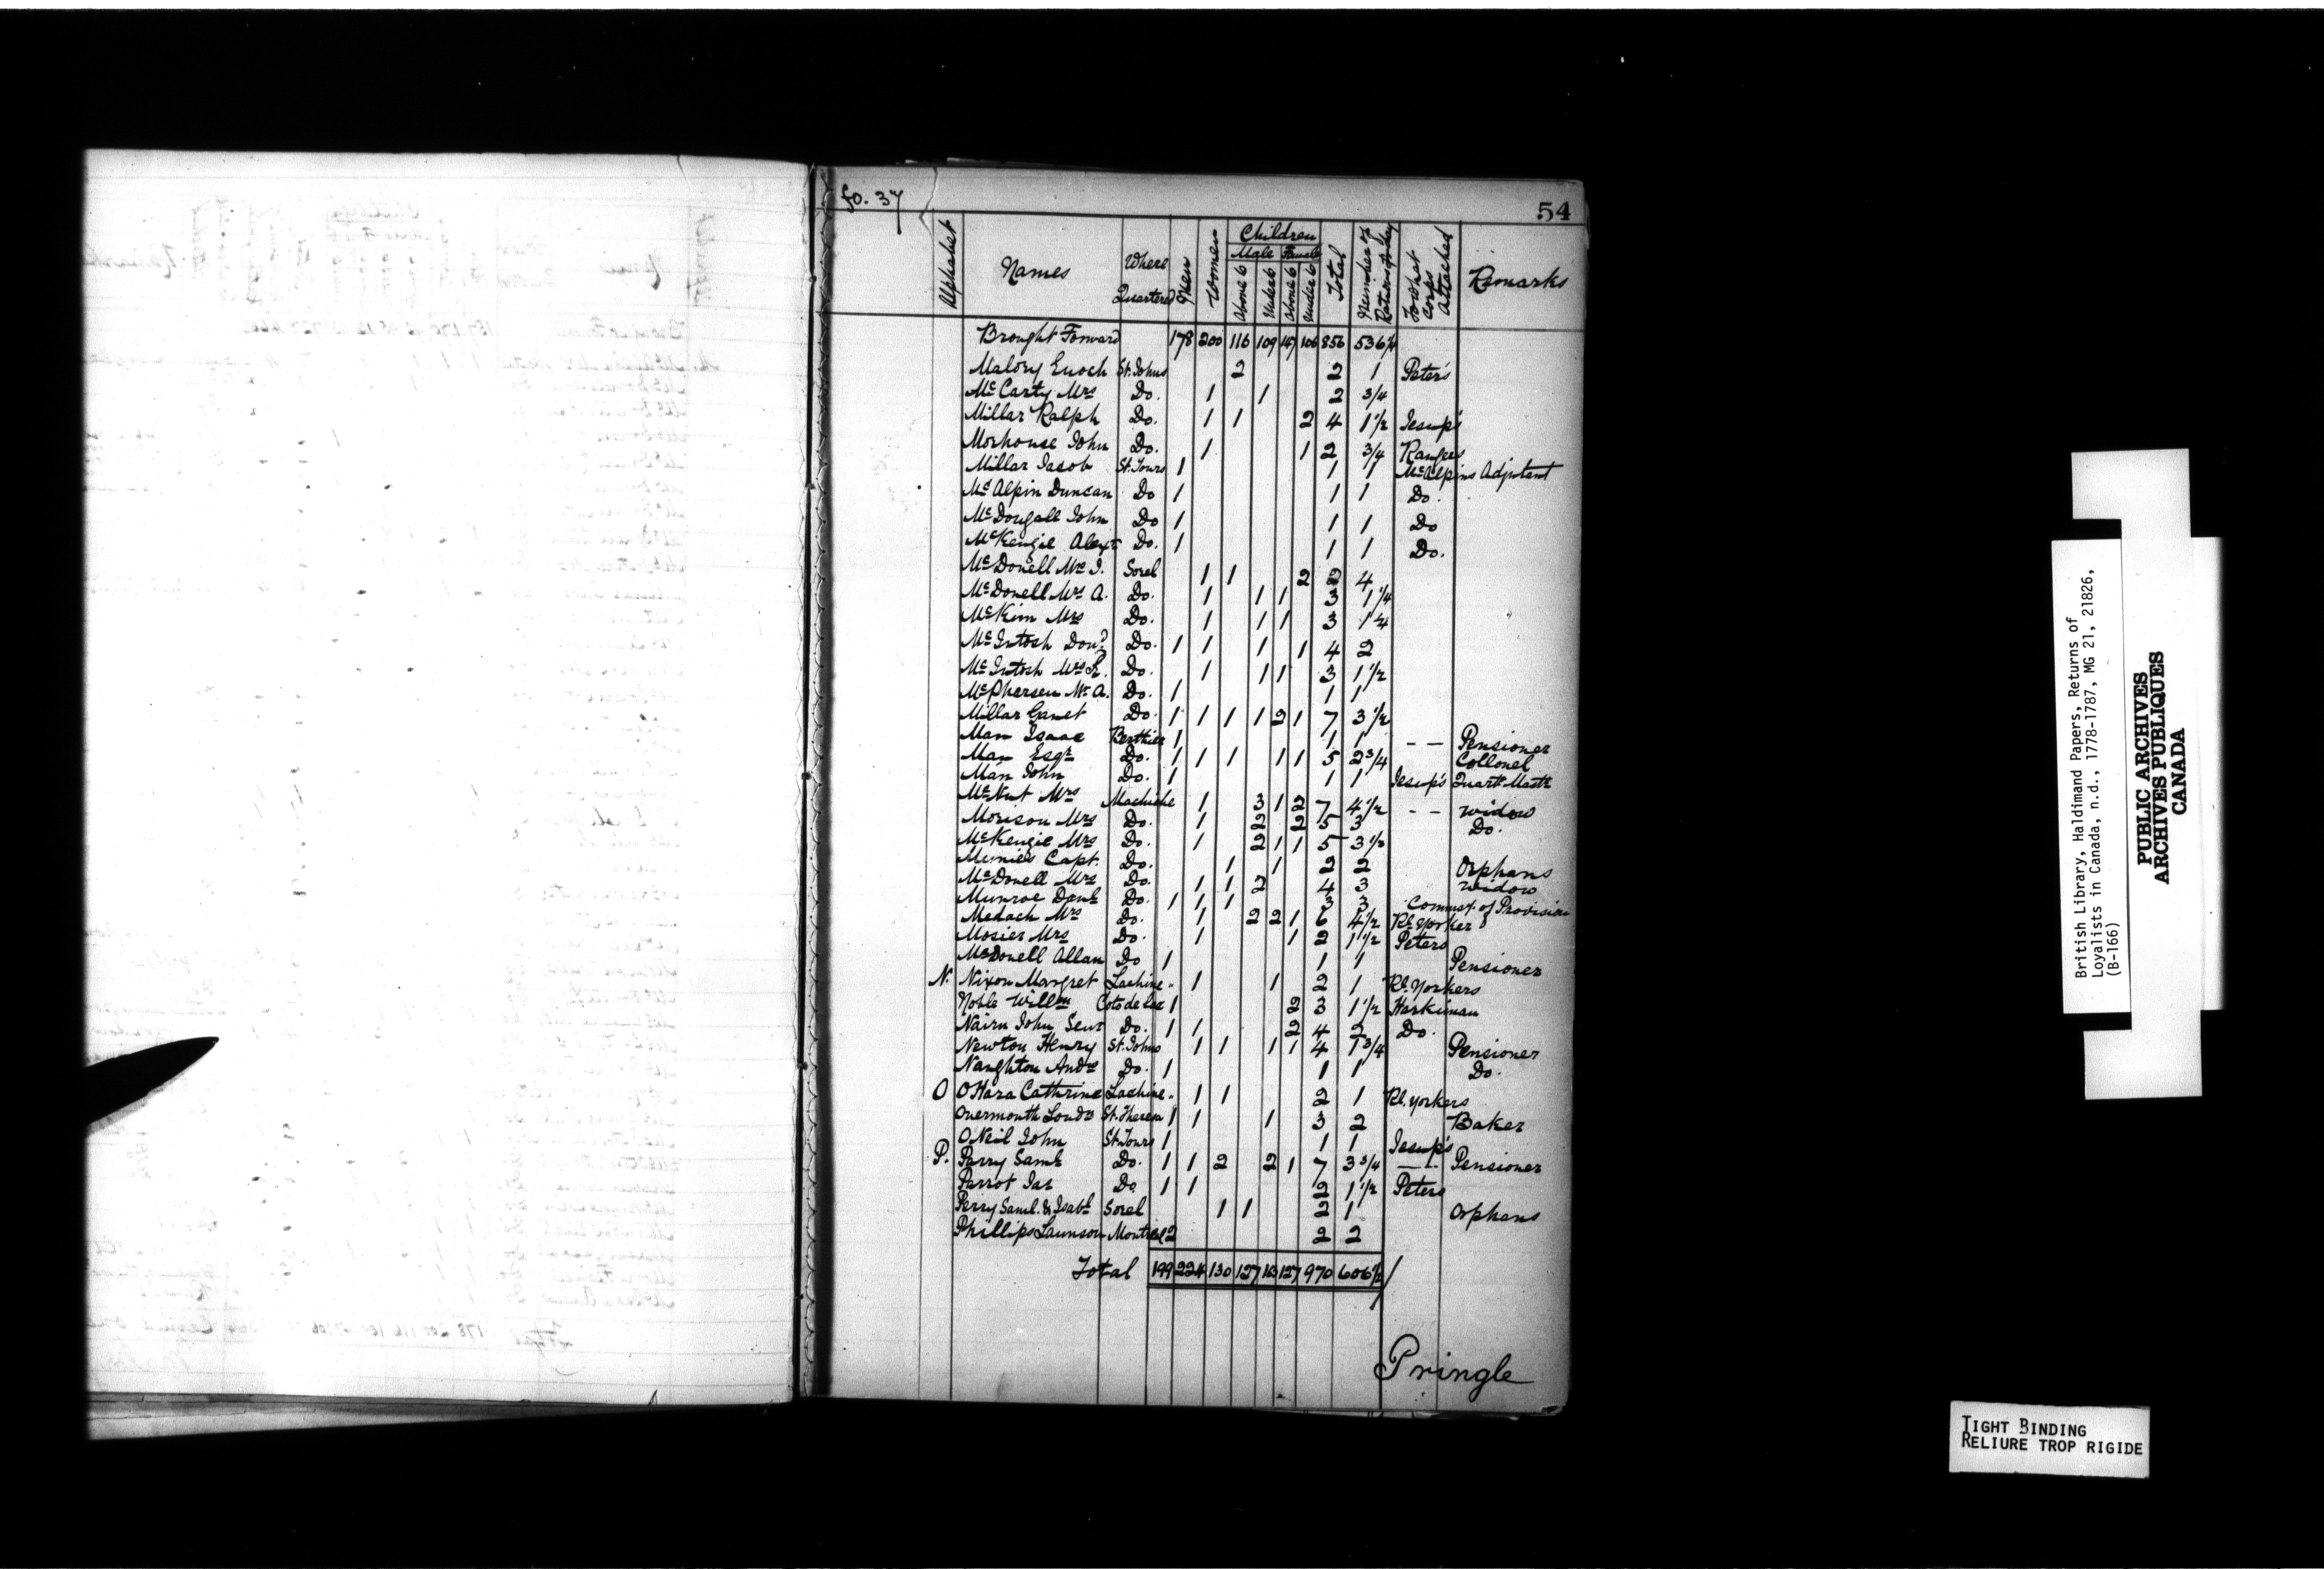 fo. 37
54
Alphabet Names Where Quartered Men Women Children Male Female Above 6 Under 6 Above 6 Under 6 Total Number of Rations pr day To what Corps Attached Remarks
Brought Forward 178 200 116 109 147 106 856 536¼
Malory Enoch St. Johns 2 2 1 Peter's
McCarty Mrs Do. 1 1 2 3/4
Millar Ralph Do. 1 1 2 4 1 1/2 Jesup's
Morhouse John Do. 1 1 2 3/4 Rangers
Millar Jacob St. Tours 1 1 1 McAlpins Adjutant
McAlpin Duncan Do 1 1 1 Do.
McDougall John Do 1 1 1 Do
McKenzie Alexr Do. 1 1 1 Do.
McDonell Mrs J. Sorel 1 1 2 2 4
McDonell Mrs A. Do. 1 1 1 3 1 1/4
McKim Mrs Do. 1 1 1 3 1 1/4
McIntosh Don. Do. 1 1 1 1 4 2
McIntosh Mrs Do. 1 1 1 3 1 1/2
McPharsen Mr A. Do. 1 1 1
Millar Garnet Do. 1 1 1 1 2 1 7 3 1/2
Man Isaac Berthier 1 1 1 — — Pensioner
Man Esqr Do. 1 1 1 1 1 5 2 3/4 Collonel
Man John Do. 1 1 1 Jesup's Quartr Mastr
McNut Mrs Machiche 1 3 1 2 7 4 1/2 - - Widow
Morison Mrs Do. 1 2 2 5 3 Do.
McKenzie Mrs Do. 1 2 1 1 5 3 1/2
Capt. Do. 1 1 2 2 Orphans
McDonell Mrs Do. 1 1 2 4 3 Widow
Munroe Danl Do. 1 1 1 3 3 Commisy. of Provision
Medach Mrs Do. 1 2 2 1 6 4 1/2 Rl. Yorker
Mosier Mrs Do. 1 1 2 1 1/2 Peters
McDonell Allan Do 1 1 1 Pensioner
N. Nixon Margret Lachine 1 1 2 1 Rl. Yorkers
Noble Willm Coto de Lac 1 2 3 1 1/2 Harkiman
Nairn John Senr Do. 1 1 2 4 2 Do.
Newton Henry St. Johns 1 1 1 1 4 1 3/4 Pensioner
Naughton Andw Do. 1 1 1 Do.
O O Hara Cathrine Lachine 1 1 2 1 Rl. Yorkers
Overmouth St. Theresa 1 1 1 3 2 Baker
O Neil John St. Tours 1 1 1 Jesup's
P. Parry Saml Do. 1 1 2 2 1 7 3 3/4 — - Pensioner
Parrot Jas Do. 1 1 2 1 1/2 Peters
Perry Saml. & Isabl Sorel 1 1 2 1 Orphans
Phillips Launson Montreal 2 2 2
Total 199 224 130 127 163 127 970 606 1/2
Pringle
British Library, Haldimand Papers, Returns of
Loyalists in Canada, n.d., 1778-1787, MG 21, 21826,
(B-166)
PUBLIC ARCHIVES
ARCHIVES PUBLIQUES
CANADA
TIGHT BINDING
RELIURE TROP RIGIDE